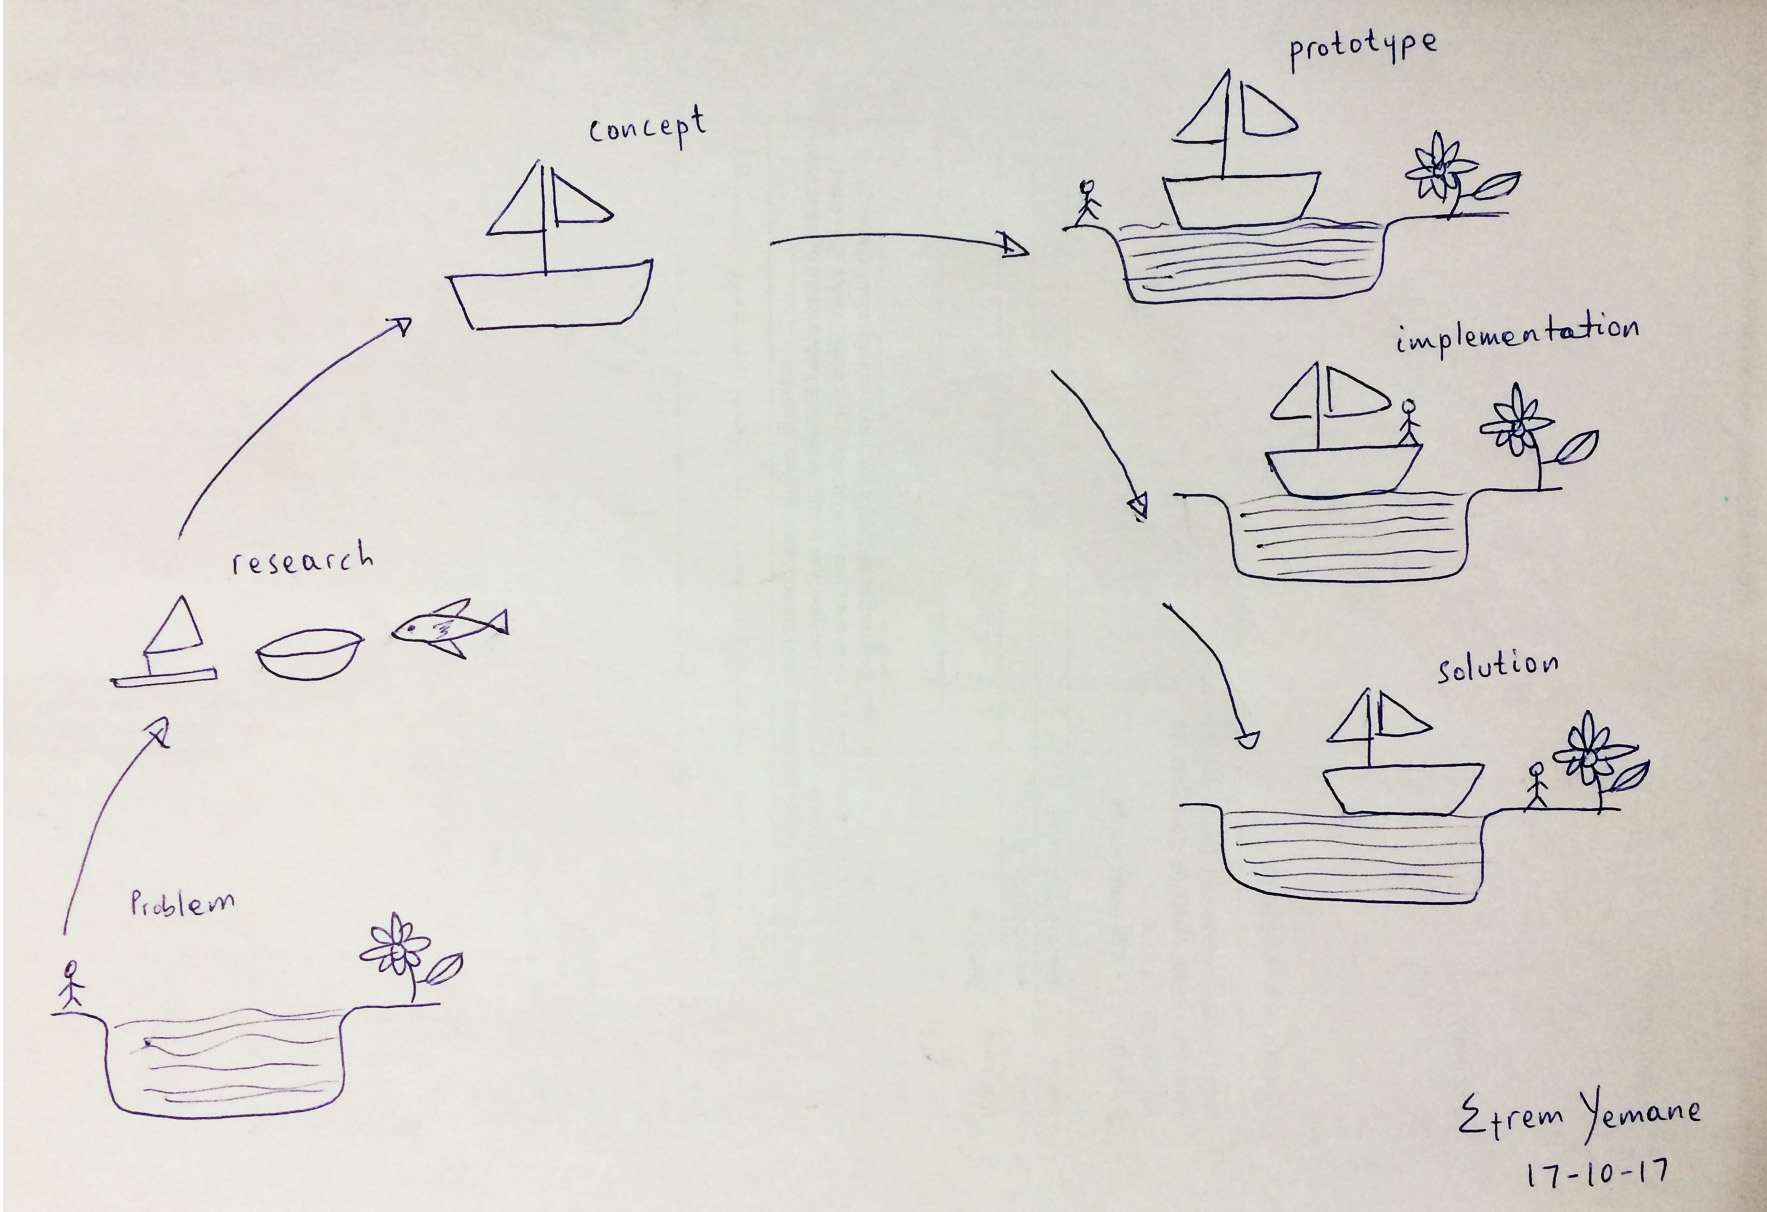 Problem
research
concept
prototype
implementation
solution
Efrem Yemane
17-10-17